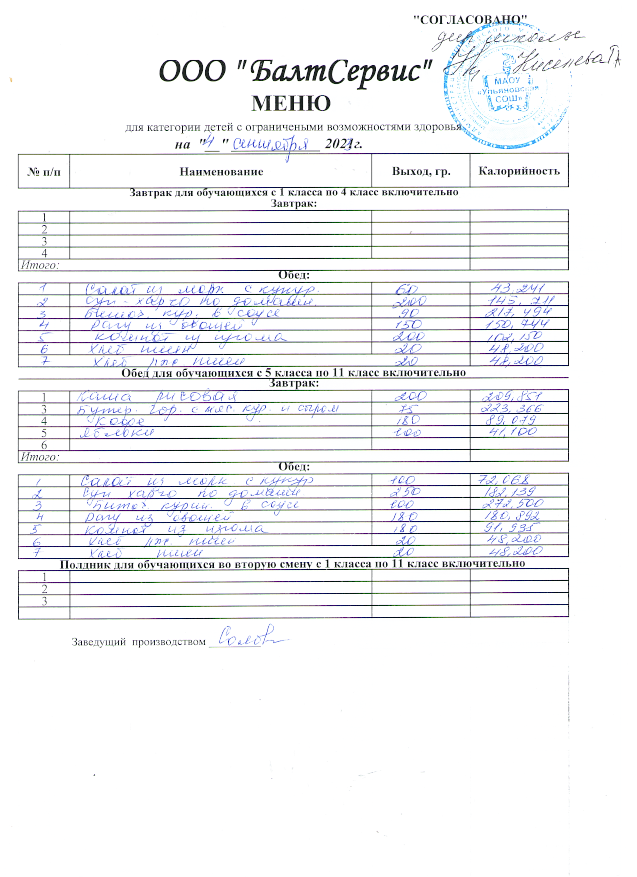 "СОГЛАСОВАНО"
дир школы
МАОУ
СОШ»
ООО "БалтСервис"
МЕНЮ
для категории детей с ограничеными возможностями здоровья
на "4" сентября 2021г.
№ п/п Наименование Выход, гр. Калорийность
Завтрак для обучающихся с 1 класса по 4 класс включительно
Завтрак:
1
2
3
4
Итого:
Обед:
1 Салат из морк с кукур. 60 43,241
2 Суп-харчо по домашн. 200 145,711
3 Биточ кур. в соусе 90 217,494
4 Рагу из овощей 150 150,744
5 Компот из изюма 200 102,150
6 Хлеб пшен 20 48,200
7 Хлеб рж. пшен 20 48,200
Обед для обучающихся с 5 класса по 11 класс включительно
Завтрак:
1 Каша рисовая 200 209,851
3 Бутер. гор. с мяс. кур. и сыром 75 223,366
4 Кофе 180 89,079
5 Яблоки 100 41,100
6
Итого:
Обед:
1 Салат из морк с кукур 100 72,068
2 Суп харчо по домашн 250 182,139
3 Биточ курин. в соусе 100 272,500
4 Рагу из овощей 180 180,892
5 Компот из изюма 180 91,935
6 Хлеб рж. пшен 20 48,200
7 Хлеб пшен 20 48,200
Полдник для обучающихся во вторую смену с 1 класса по 11 класс включительно
1
2
3
Заведущий производством